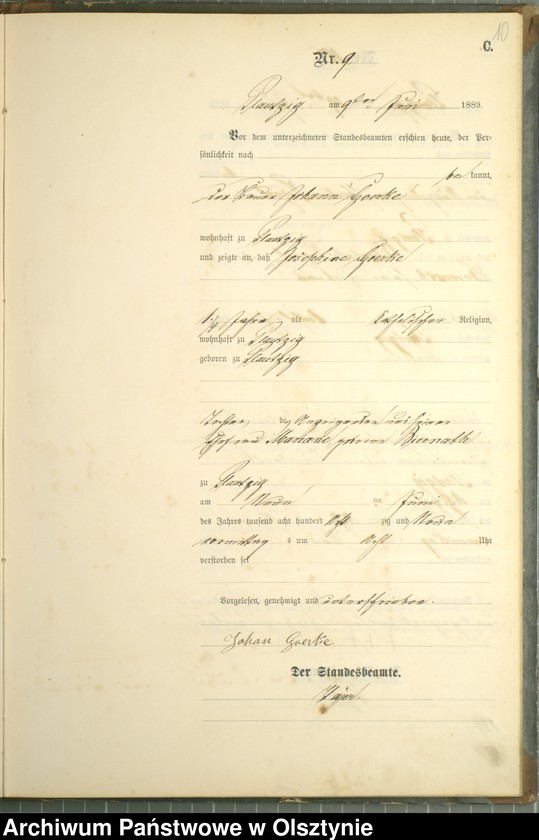 10
C.
Nr. 9
Plautzig am 9ten Juni 1889.
Vor dem unterzeichneten Standesbeamten erschien heute, der Per-
sönlichkeit nach
be kannt,
der Bauer Johann Goerke
wohnhaft zu Plautzig
und zeigte an, daß Josephine Goerke
Jahre alt Katholischer Religion,
wohnhaft zu Plautzig
geboren zu Plautzig
Tochter des Anzeigenden und seiner
Ehefrau Mariane, geborene Biernath
zu Plautzig
am Neun ten Juni
des Jahres tausend acht hundert Acht zig und Neun
vormittag s um Acht Uhr
verstorben sei
Vorgelesen, genehmigt und unterschrieben.
Johan Goerke
Der Standesbeamte.
Archiwum Państwowe w Olsztynie